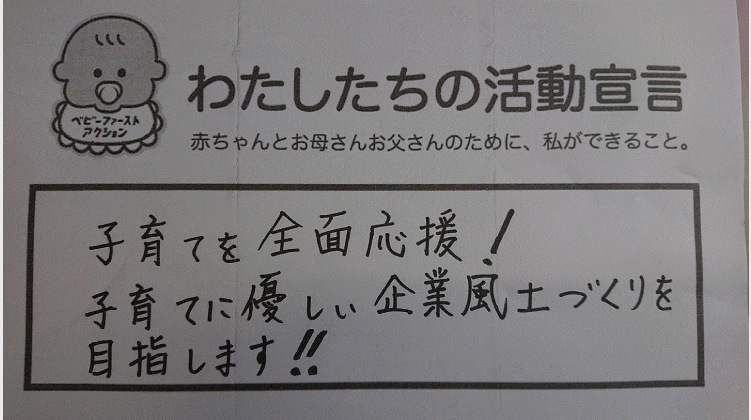 ベビーファースト
アクション
わたしたちの活動宣言
赤ちゃんとお母さんお父さんのために、私ができること。
子育てを全面応援!
子育てに優しい企業風土づくりを
目指します!!